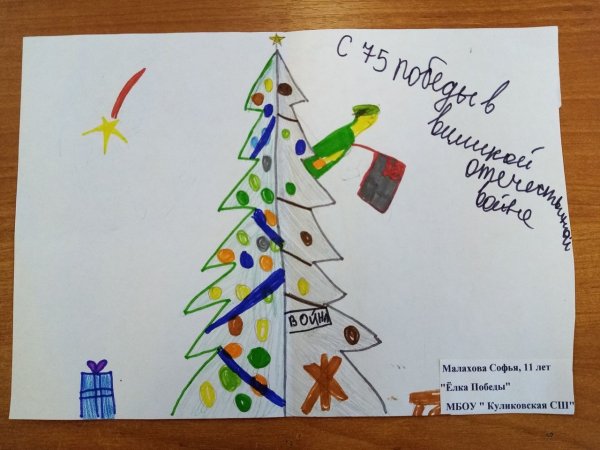 С 75 победы в
виликой
отечествиной
войне
ВОЙНА
Малахова Софья, 11 лет
"Ёлка Победы"
МБОУ " Куликовская СШ"